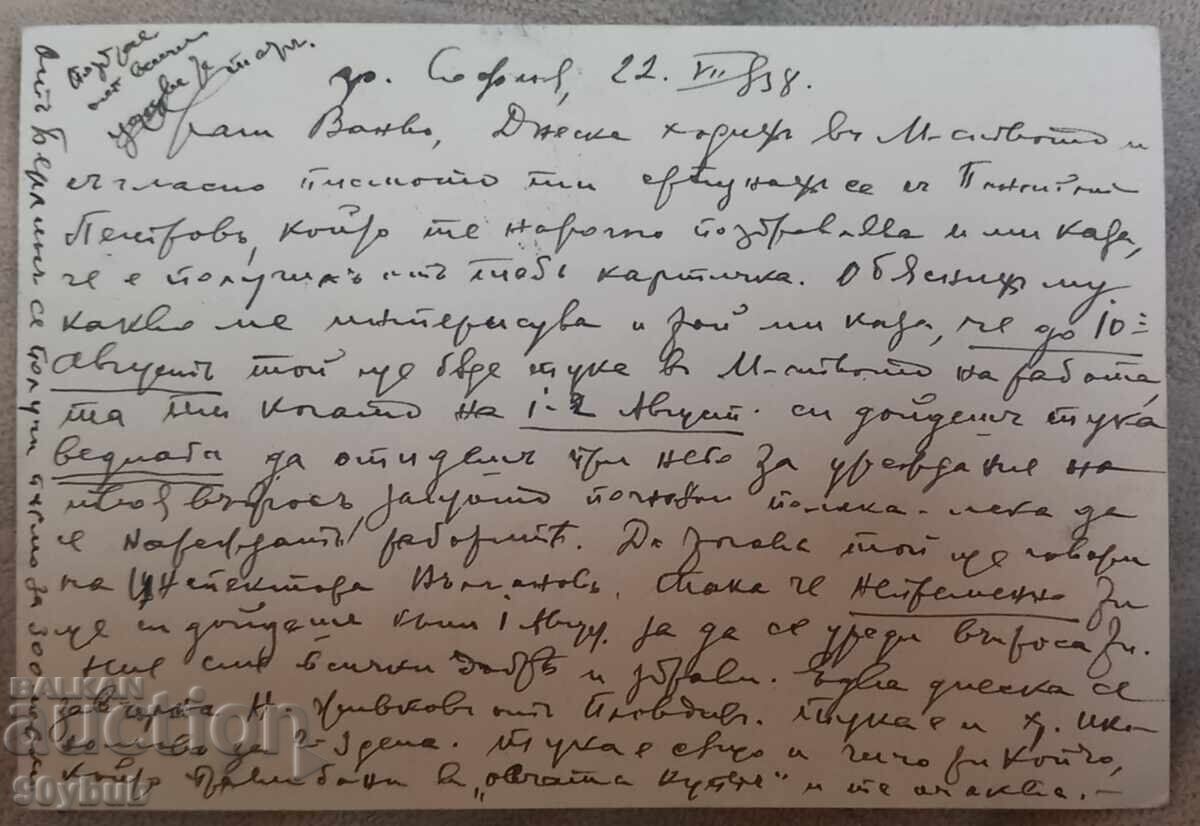 гр. София, 22. VII 938.
Драги Ваньо, Днеска ходихъ въ М-ството и
съгласно писмото ти срещнахъ се съ
Петровъ, който те нарочно поздравлява и ми каза,
че е получилъ отъ тебъ картичка. Обяснихъ му
какво ме интересува и той ми каза, че до 10-
Августъ той ще бѫде тука въ М-ството на работа,
та ти когато на 1-2 Август. си дойдешъ тука
веднага да отидешъ при него за уреждание на
твоя въпросъ, защото почнали полека-лека да
се нареждатъ работитѣ. До тогава той ще говори
на Инспектора Вълчановъ. Така че непременно ти
ще си дойдешъ към 1 Авгу. за да се уреди въпроса ти.
Ние сме всички добрѣ и здрави. Едва днеска се
завърна Н. Живковъ отъ Пловдивъ. Тука е и х.
за 2-3 дена. Тука е също и чичо ти Койчо,
който прави бани въ "Овчата купель" и те очаква.-
Отъ Берлинъ се получи писмо за 300 лева
поздрав
отъ всички
BALKAN
auction
soybul